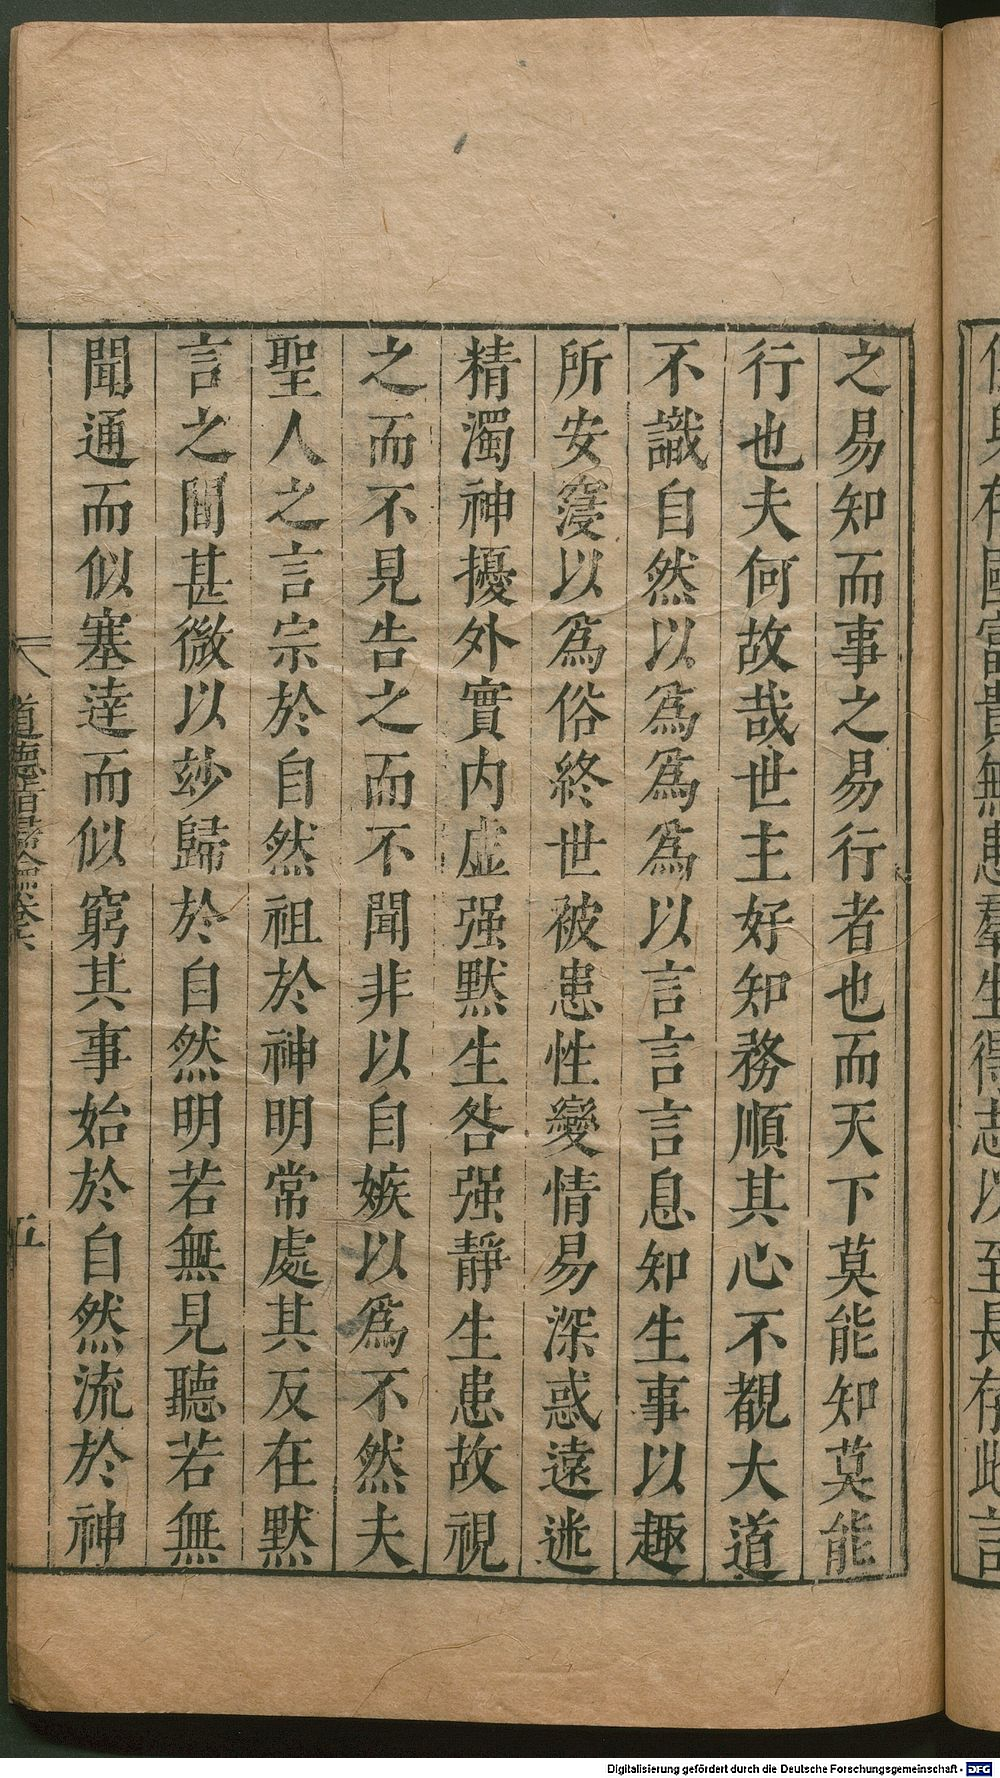 之易知而事之易行者也而天下莫能知莫能
行也夫何故哉世主好知務順其心不覩大道
不識自然以爲爲爲以言言言息知生事以趣
所安寖以爲俗終世被患性變情易深惑遠迯
精濁神擾外實内虛强黙生咎强靜生患故視
之而不見告之而不聞非以自嫉以爲不然夫
聖人之言宗於自然祖於神明常處其反在黙
言之間甚微以玅歸於自然明若無見聽若無
聞通而似塞達而似窮其事始於自然流於神
道德指歸論卷六
五
有國富貴無患羣生得志以至長存此言
Digitalisierung gefördert durch die Deutsche Forschungsgemeinschaft - DFG